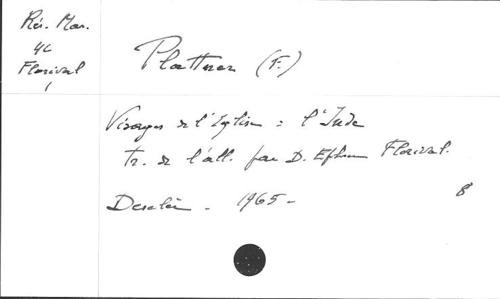 Rés. Mar.
4C
Florival
1
Plattner (F.)
Visages de l'Eglise : l'Inde
tr. de l'all. par D. Ephrem Florival.
Desclée - 1965 -
B